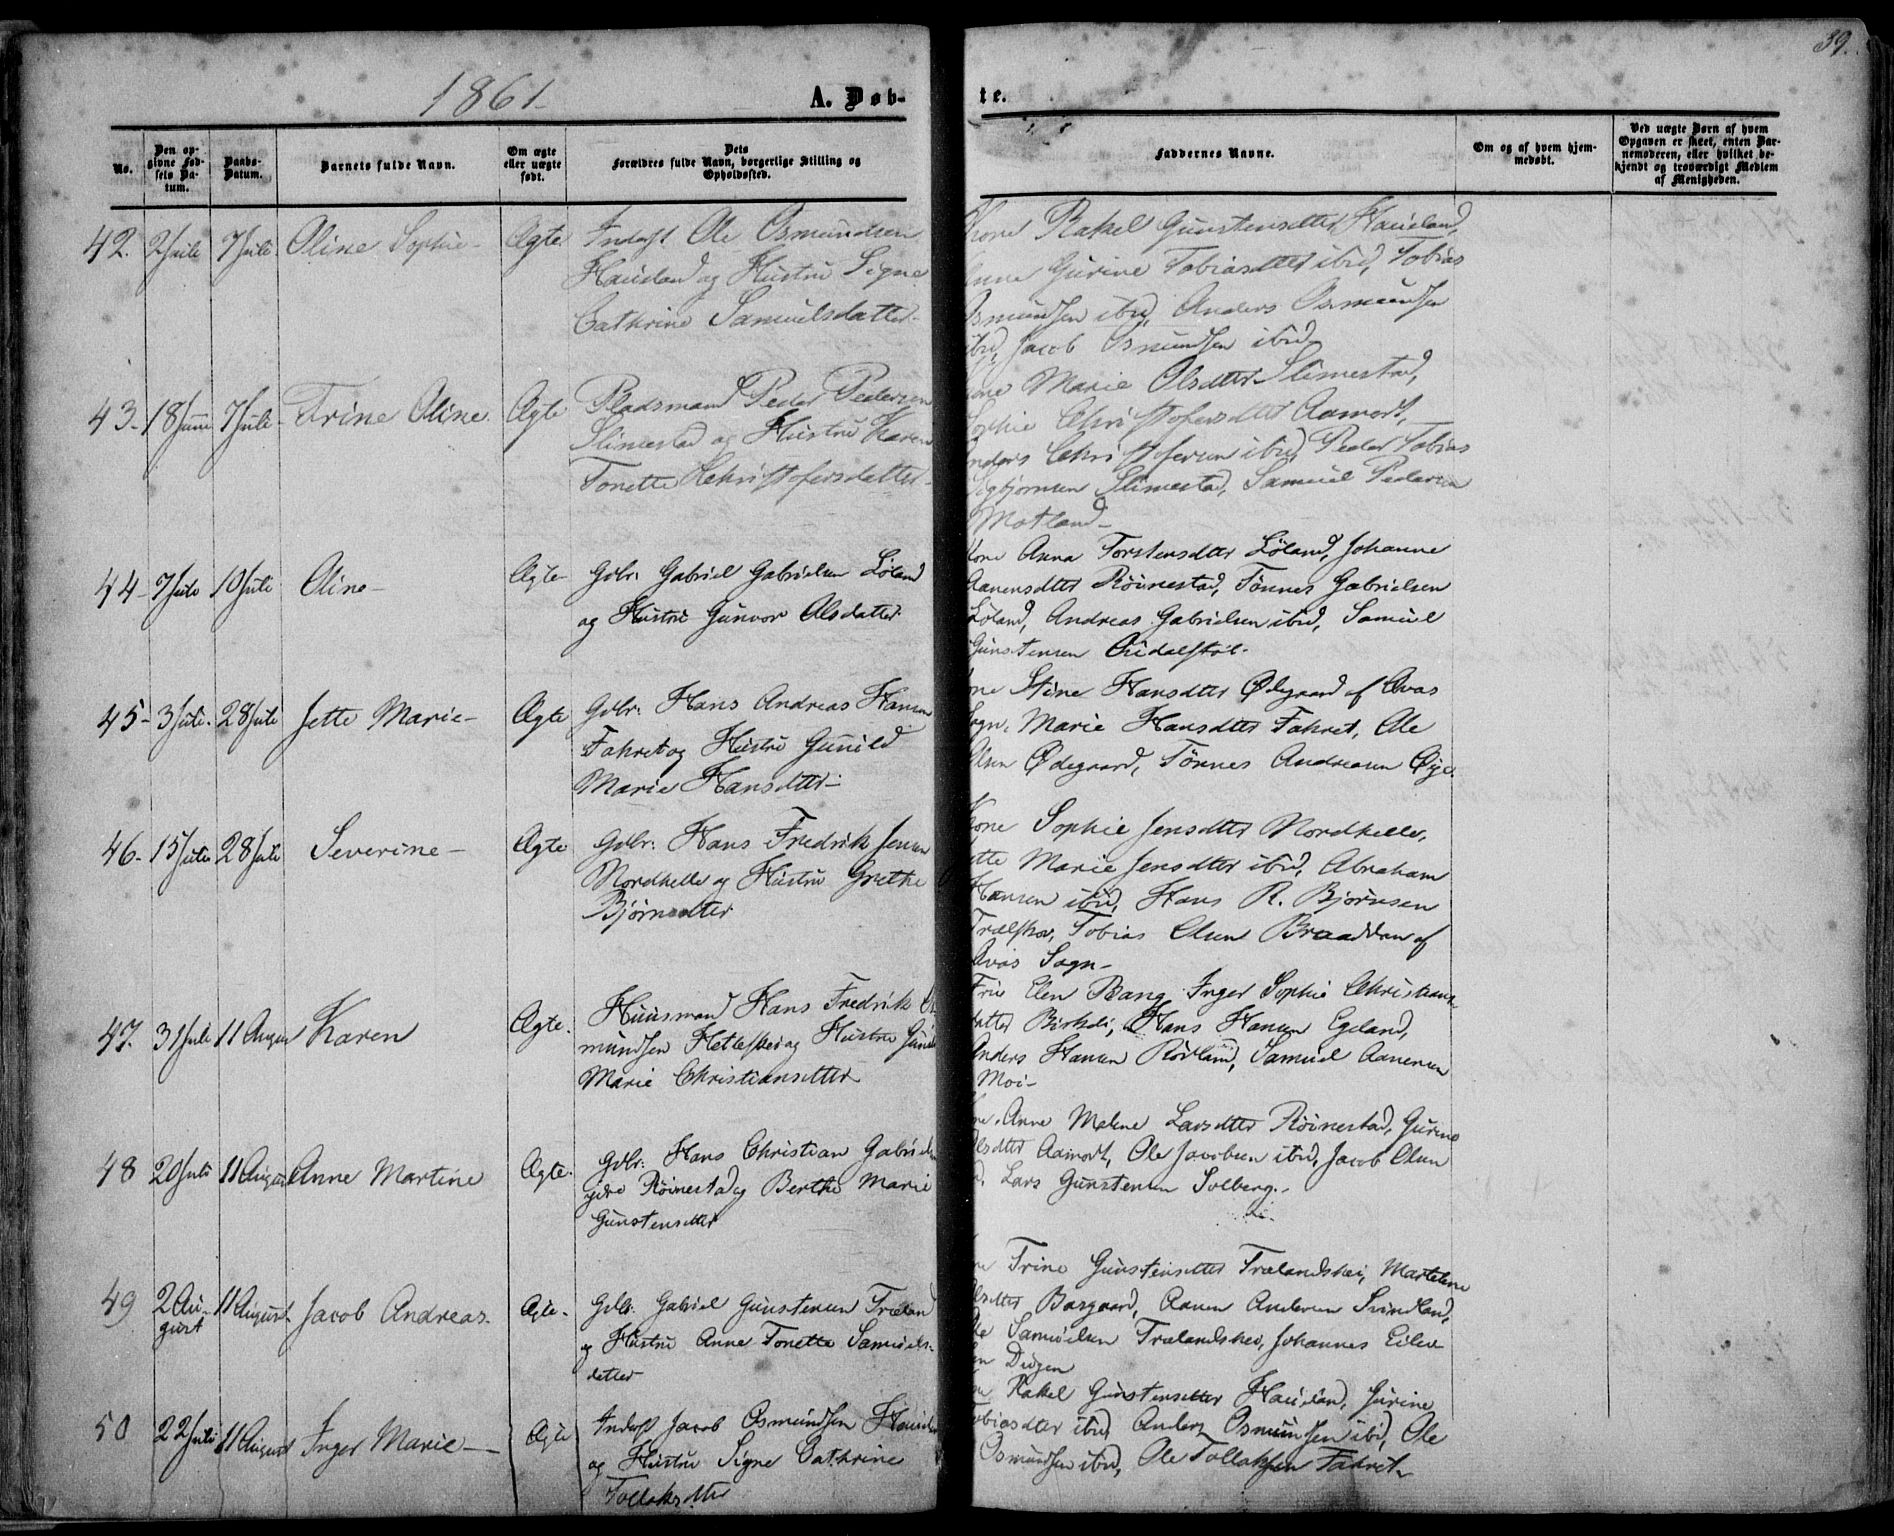 39.
1861-
A. Døb-
te.
No.
Den op-
givne Fød-
sels Da-
tum.
Daabs-
Datum.
Barnets fulde Navn.
Om ægte
eller uægte
født.
Dets
Forældres fulde Navn, borgerlige Stilling og
Opholdssted.
Faddernes Navne.
Om og af hvem hjem-
medøbt.
Ved uægte Børn af hvem
Opgaven er skeet, enten Bar-
nemoderen, eller hvilket be-
kjendt og troværdigt Medlem
af Menigheden.
42. 2 Juli 7 Juli Oline Sophie- Ægte Inderst Ole Osmundsen
Hauland og Hustru Signe
Cathrine Samuelsdatter-
Kone Rakel Gunstensdtter Hauland,
Gurine Tobiasdtter ibid, Tobias
Osmundsen ibid, Anders Osmundsen
ibid, Jacob Osmundsen ibid
43- 18 Juni 7 Juli Trine Oline. Ægte Pladsmand Peder Pedersen
Slimestad og Hustru Karen
Tonette Christofersdatter-
Marie Olsdtter Slimestad,
Sophie Christofersdtter Aamodt,
Anders Christofersen ibid, Peder Tobias
Sigbjørnsen Slimestad, Samuel Pedersen
Motland-
44- 7 Juli 10 Juli Oline- Ægte- Gdbr: Gabriel Gabrielsen Løland
og Hustru Gunvor Olsdatter
Kone Anna Torstensdtter Løland, Johanne
Aanensdtter Røinestad, Tønnes Gabrielsen
Løland, Andreas Gabrielsen ibid, Samuel
Gunstensen
45- 3 Juli. 28 Juli Jette Marie- Ægte Gdbr: Hans Andreas Hansen
Fahret og Hustru Gunild
Marie Hansdtter-
Kone Stine Hansdtter Ødegaard af Evas
Sogn, Marie Hansdtter Fahret, Ole
Olsen Ødegaard, Tønnes Andreasen Øye.
46- 15 Juli 28 Juli Severine- Ægte Gdbr: Hans Fredrik Jensen
Nordhelle og Hustru Grethe
Bjørnsdtter
Kone Sophie Jensdtter Nordhelle,
Marie Jensdtter ibid, Abraham
Hansen ibid, Hans R. Bjørnsen
Tobias Olsen af
Sogn-
47. 31 Juli 11 August Karen Ægte. Huusmand Hans Fredrik Os
mundsen og Hustru Gunild
Marie Christiansdtter
Fru Elen Bang, Inger Sophie Christians-
datter Birkeli, Hans Hansen Egeland,
Anders Hansen Rødland, Samuel Aanensen
Moi-
48 20 Juli 11 August Anne Martine Ægte. Gdbr: Hans Christian Gabriel
ydre Røinestad og Berthe Marie
Gunstensdtter
Anne Malene Larsdtter Røinestad, Gurine
Olsdtter Aamodt, Ole Jacobsen ibid, Jacob Olsen
Lars Gunstensen Solberg.-
49 2 Au-
gust 11 August. Jacob Andreas. Ægte- Gdbr. Gabriel Gunstensen Træland
og Hustru Anne Tonette Samuels-
datter
Trine Gunstensdtter Trælandshei, Martelene
Olsdtter Borgaard, Aanen Andersen Svindland,
Ole Samuelsen Trælandshei, Johannes Eilev
sen Dugen
50 22 Juli 11 August Inger Marie- Ægte Inderst Jacob Osmundsen Hauland
og Hustru Signe Cathrine
Tollaksdtter
Rakel Gunstensdtter Hauland, Gurine
Tobiasdtter ibid, Anders Osmundsen ibid, Ole
Osmundsen ibid, Ole Tollaksen Fahret-